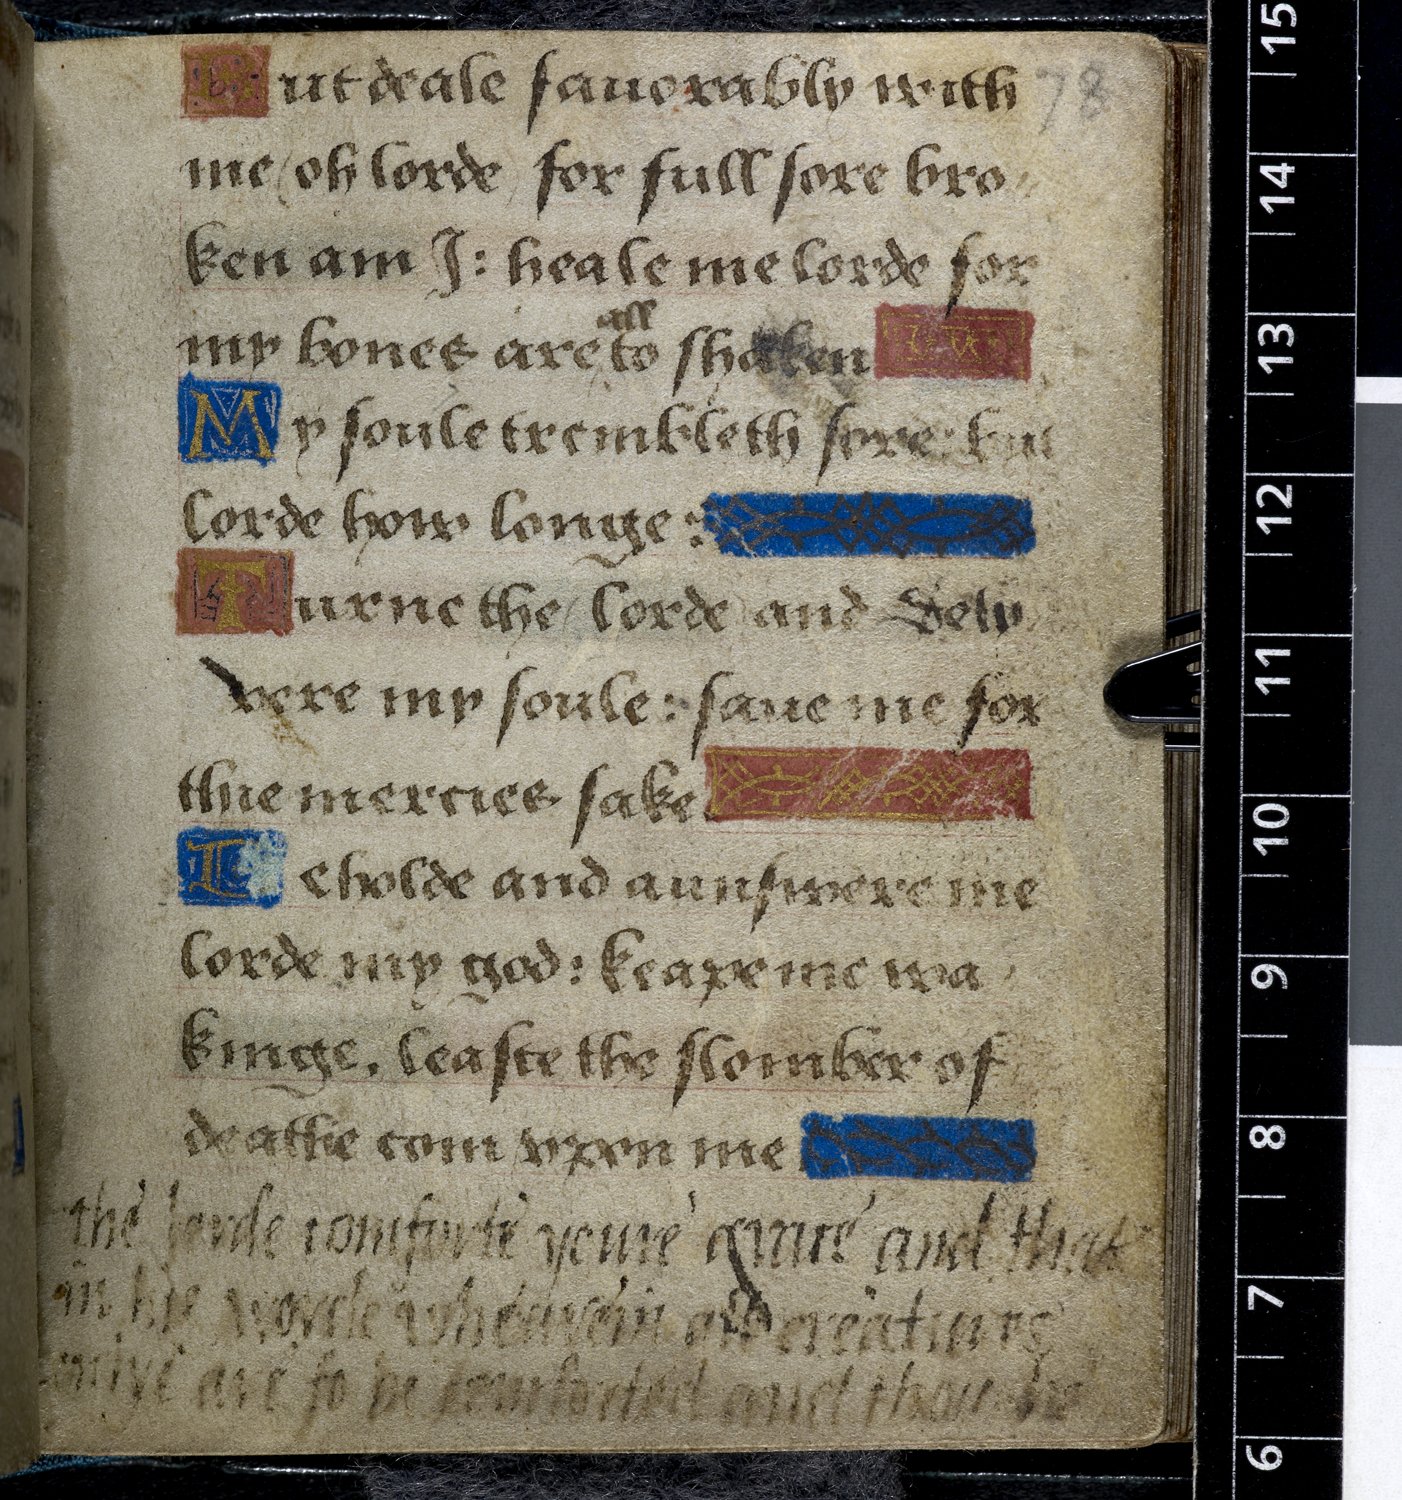 But deale fauorably with 78
me (oh lorde) for full sore bro
ken am I: heale me lorde for
my bones are all to shaken
My soule trembleth sore: but
lorde how longe:
Turne the (lorde) and dely
vere my soule: saue me for
thie mercies sake
eholde and aunswere me
lorde my god: keape me wa
kinge, leaste the slomber of
deathe com vpon me
the lorde comforte youre grace and that
in his worde wherein all creatures
onlye are to be comforted and thoughe
15
14
13
12
11
10
9
8
7
6